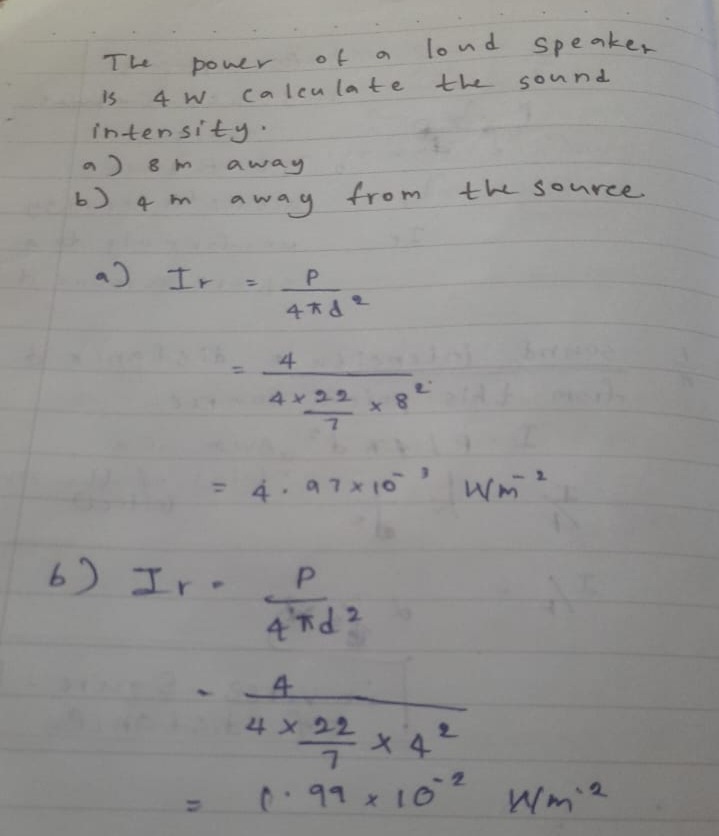 The power of a loud speaker
is 4 W calculate the sound
intensity.
a) 8 m away
b) 4 m away from the source.
a) Ir = P / 4πd²
= 4 / 4 × 22/7 × 8²
= 4.97 × 10⁻³ Wm⁻²
b) Ir = P / 4πd²
= 4 / 4 × 22/7 × 4²
= 1.99 × 10⁻² Wm⁻²